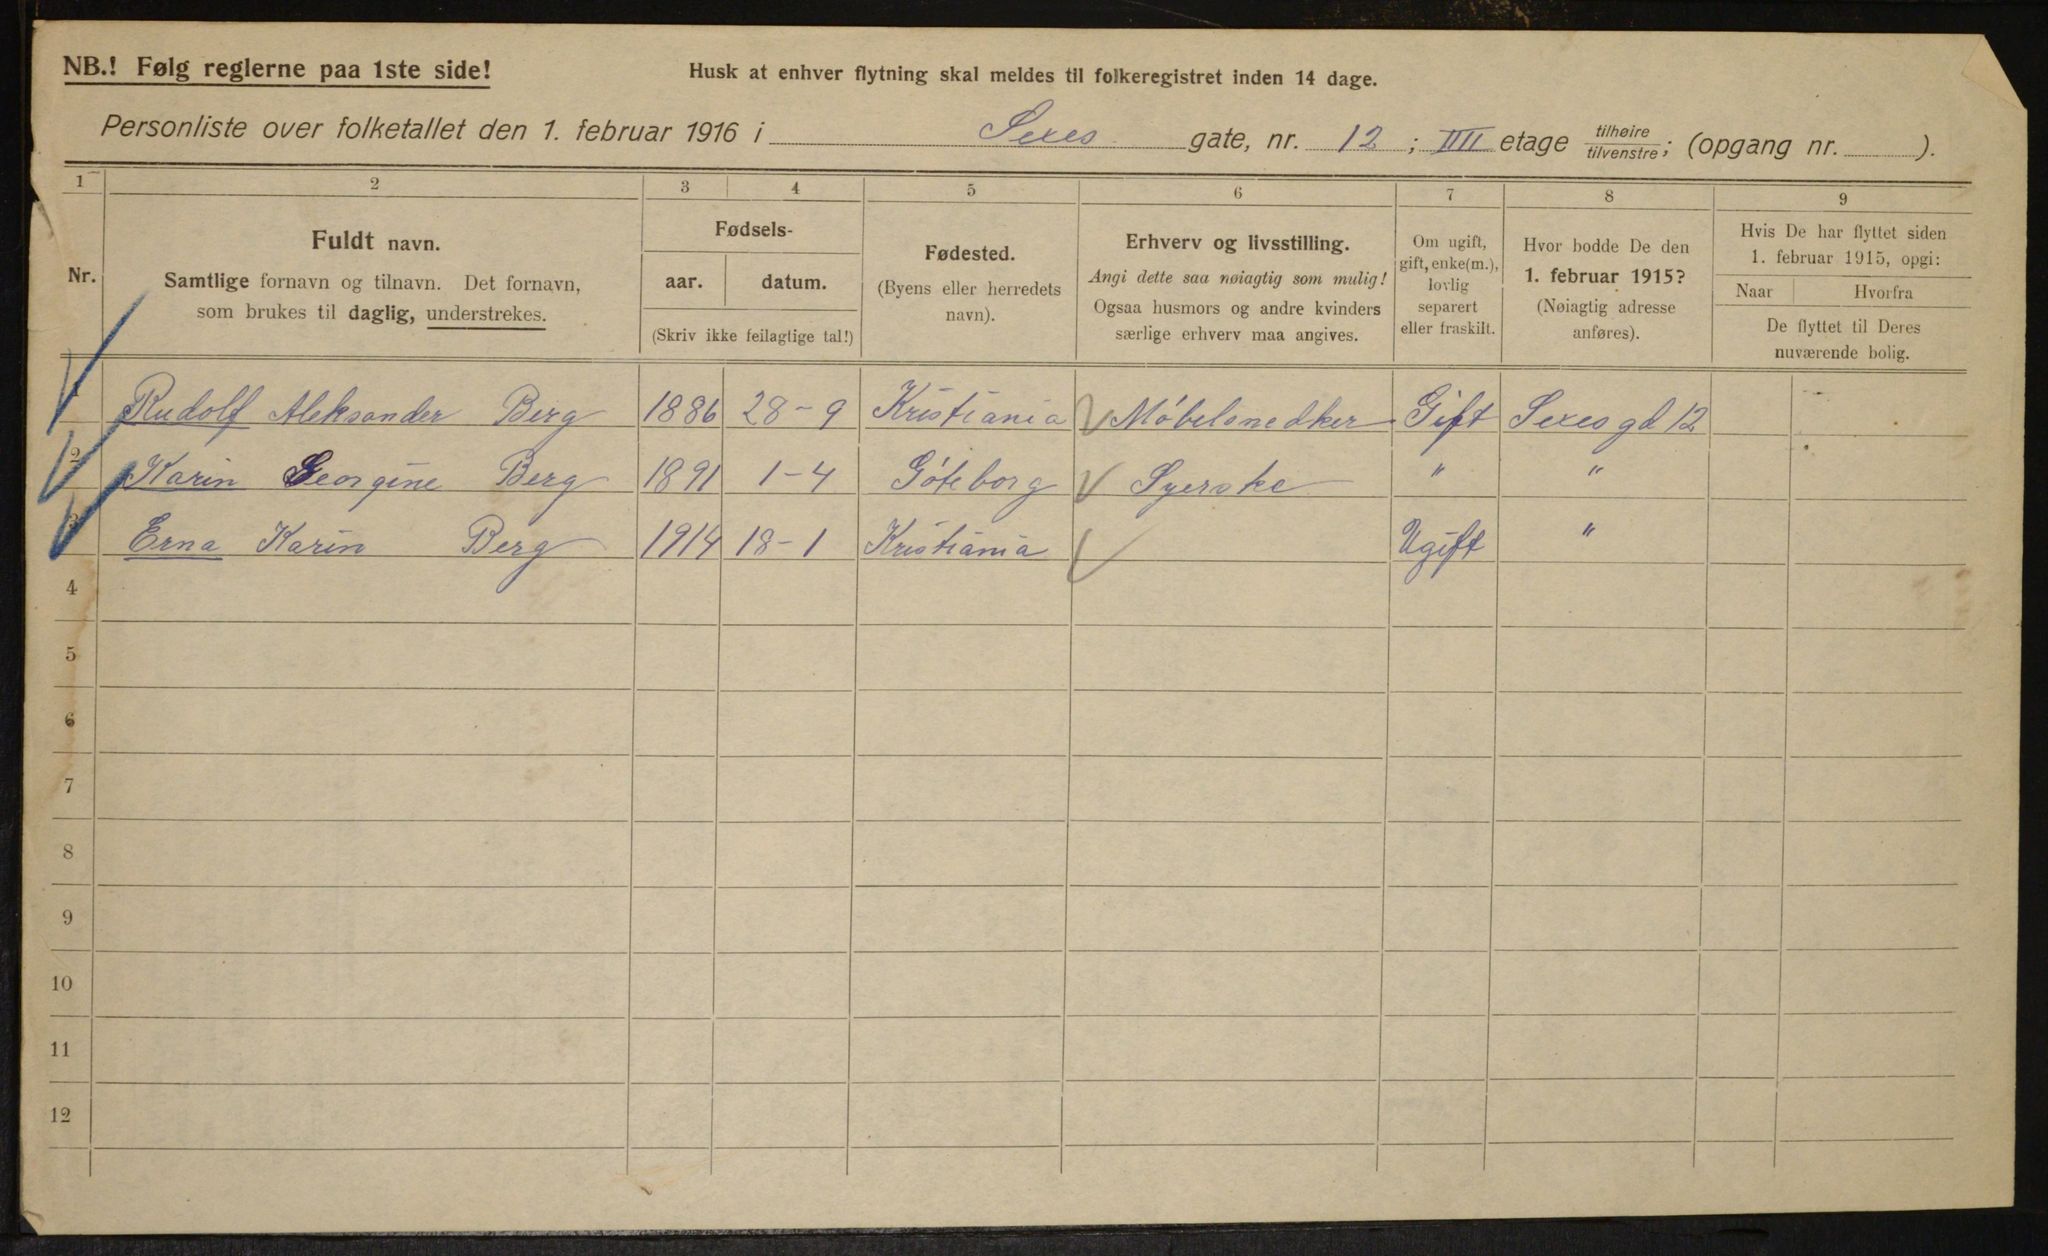 NB.! Følg reglerne paa 1ste side!
Husk at enhver flytning skal meldes til folkeregistret inden 14 dage.
Personliste over folketallet den 1. februar 1916 i Sexes gate, nr. 12 ; IIII etage tilhøire / tilvenstre ; (opgang nr. ).
1 2 3 4 5 6 7 8 9
Nr.
Fuldt navn.
Samtlige fornavn og tilnavn. Det fornavn,
som brukes til daglig, understrekes.
Fødsels-
aar. datum.
(Skriv ikke feilagtige tal!)
Fødested.
(Byens eller herredets
navn).
Erhverv og livsstilling.
Angi dette saa nøiagtig som mulig!
Ogsaa husmors og andre kvinders
særlige erhverv maa angives.
Om ugift,
gift, enke(m.),
lovlig
separert
eller fraskilt.
Hvor bodde De den
1. februar 1915?
(Nøiagtig adresse
anføres).
Hvis De har flyttet siden
1. februar 1915, opgi:
Naar Hvorfra
De flyttet til Deres
nuværende bolig.
1 Rudolf Aleksander Berg 1886 28-9 Kristiania Møbelsnedker Gift Sexes gd 12
2 Karin Georgine Berg 1891 1-4 Göteborg Syerske " "
3 Erna Karin Berg 1914 18-1 Kristiania Ugift "
4
5
6
7
8
9
10
11
12